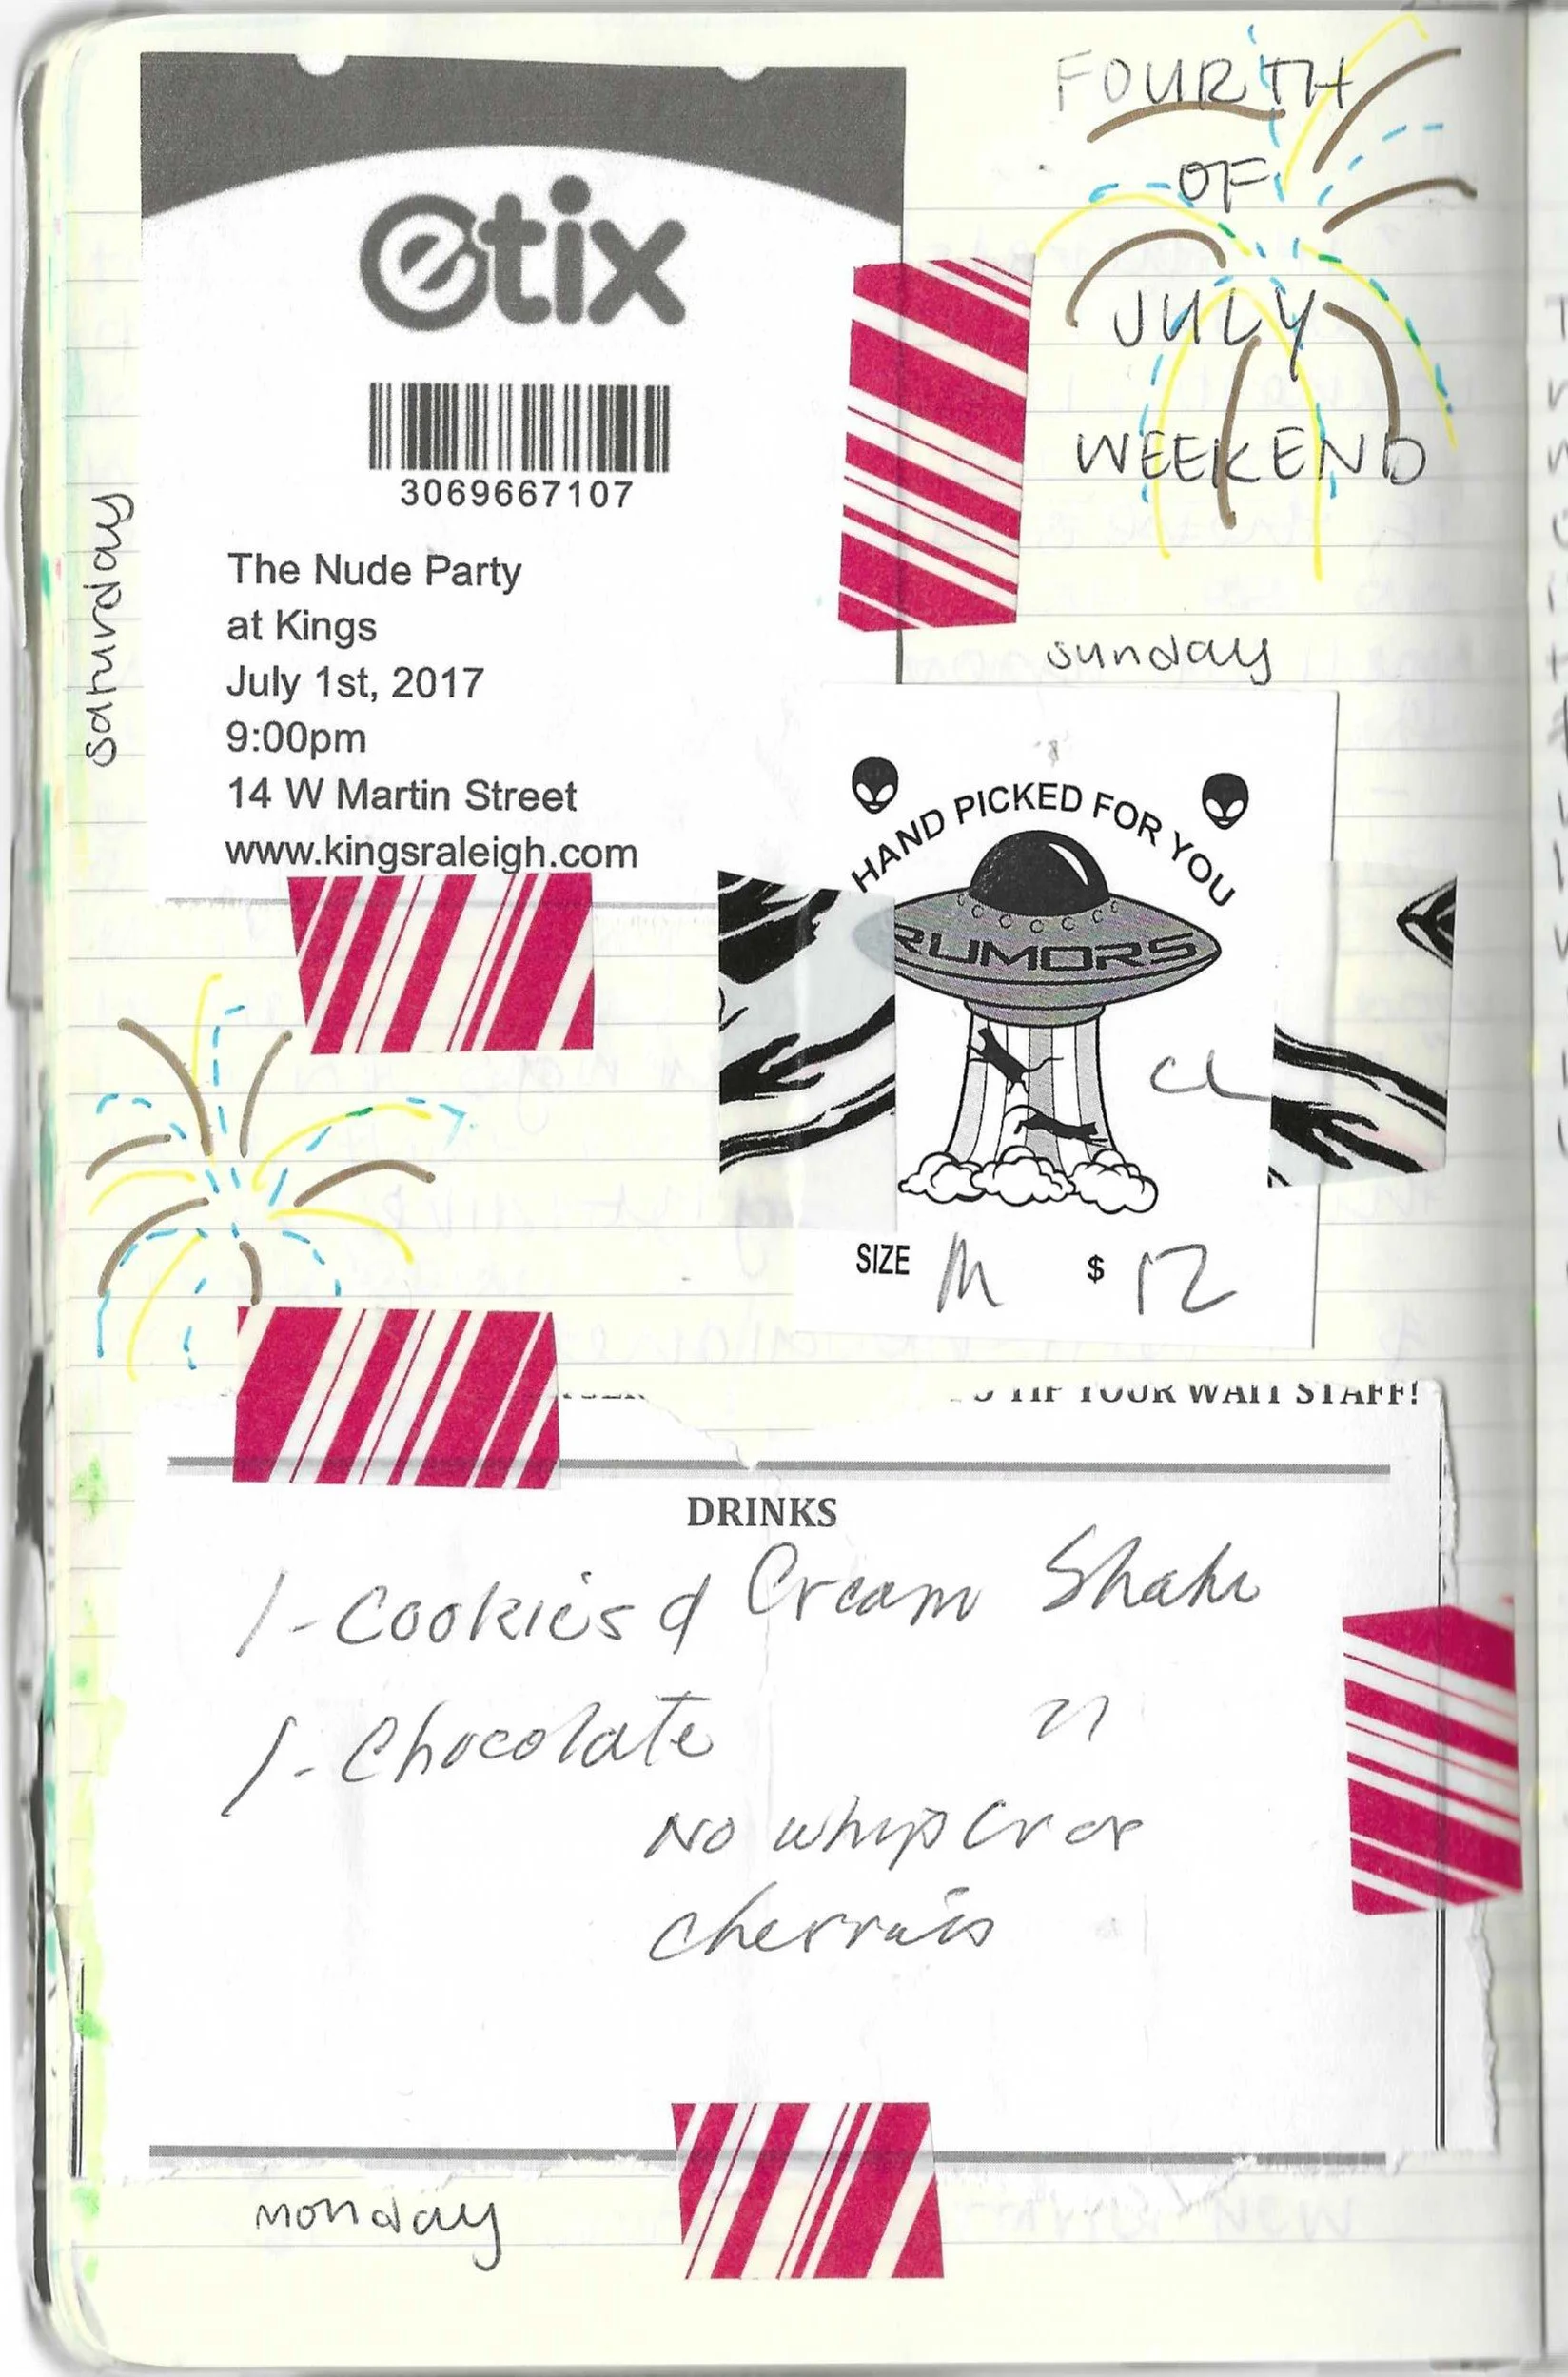 FOURTH
OF
JULY
WEEKEND
saturday
etix
3069667107
The Nude Party
at Kings
July 1st, 2017
9:00pm
14 W Martin Street
www.kingsraleigh.com
sunday
HAND PICKED FOR YOU
RUMORS
CL
SIZE M $ 12
TIP YOUR WAIT STAFF!
DRINKS
1-Cookies & Cream Shake
1-Chocolate "
No whip Cr or
cherries
monday